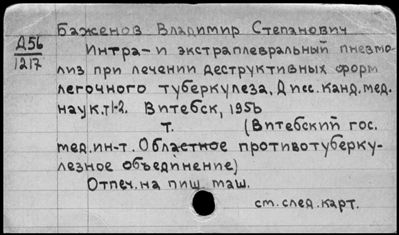 Баженов Владимир Степанович
Д56
1217
Интра- и экстраплевральный пневмо-
лиз при лечении деструктивных форм
легочного туберкулеза. Дисс. канд. мед.
наук. т. 1-2. Витебск, 1956
т. (Витебский гос.
мед. ин-т. Областное противотуберку-
лезное объединение)
Отпеч. на пиш. маш.
см. след. карт.